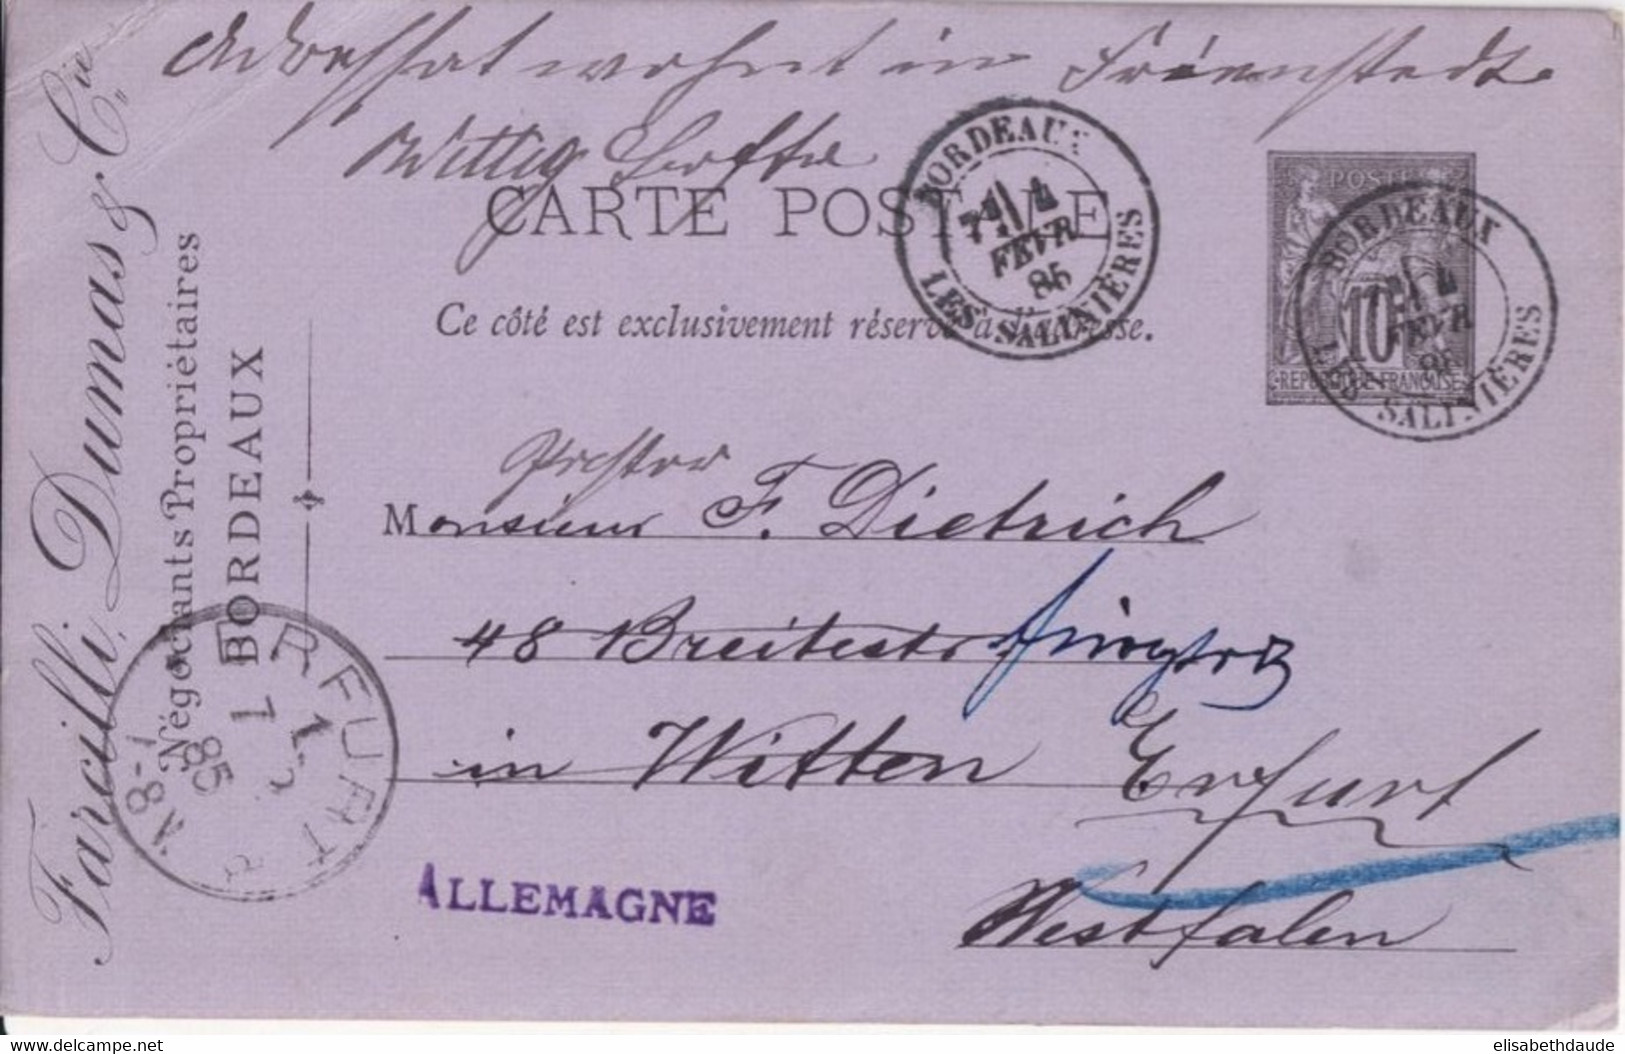 Adressat wohnt in
Wittig
CARTE POSTALE
Ce côté est exclusivement réservé à l'adresse.
BORDEAUX
4
FEVR
85
LES SALINIÈRES
POSTES
10
REPUBLIQUE FRANÇAISE
BORDEAUX
4
FEVR
85
LES SALINIÈRES
Farcilli, Dumas & Cie
Négociants Propriétaires
BORDEAUX
Monsieur F. Dietrich
48 Breitestr
in Witten Erfurt
Westfalen
ERFURT
7
2
85
8-9V
ALLEMAGNE
www.delcampe.net
elisabethdaude